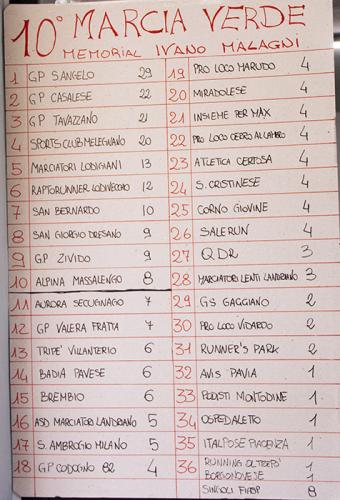 10° MARCIA VERDE
MEMORIAL IVANO MALAGNI
1 GP S.ANGELO 29
2 GP CASALESE 22
3 GP TAVAZZANO 21
4 SPORTS CLUB MELEGNANO 20
5 MARCIATORI LODIGIANI 13
6 RAPTORUNNER LODIVECCHIO 12
7 SAN BERNARDO 10
8 SAN GIORGIO DRESANO 9
9 GP ZIVIDO 9
10 ALPINA MASSALENGO 8
11 AURORA SECUGNAGO 7
12 GP VALERA FRATTA 7
13 TRIPE' VILLANTERIO 6
14 BADIA PAVESE 6
15 BREMBIO 6
16 ASD MARCIATORI LANDRIANO 5
17 S. AMBROGIO MILANO 5
18 GP CODOGNO 82 4
19 PRO LOCO MARUDO 4
20 MIRADOLESE 4
21 INSIEME PER MAX 4
22 PRO LOCO CERRO AL LAMBRO 4
23 ATLETICA CERTOSA 4
24 S. CRISTINESE 4
25 CORNO GIOVINE 4
26 SALERUN 4
27 QDR 3
28 MARCIATORI LENTI LANDRIANO 3
29 GS GAGGIANO 2
30 PRO LOCO VIDARDO 2
31 RUNNER'S PARK 2
32 AVIS PAVIA 1
33 PODISTI MONTODINE 1
34 OSPEDALETTO 1
35 ITALPOSE PIACENZA 1
36 RUNNING OLTREPO'
BORGONOVESE 1
SINGOLI FIASP 8